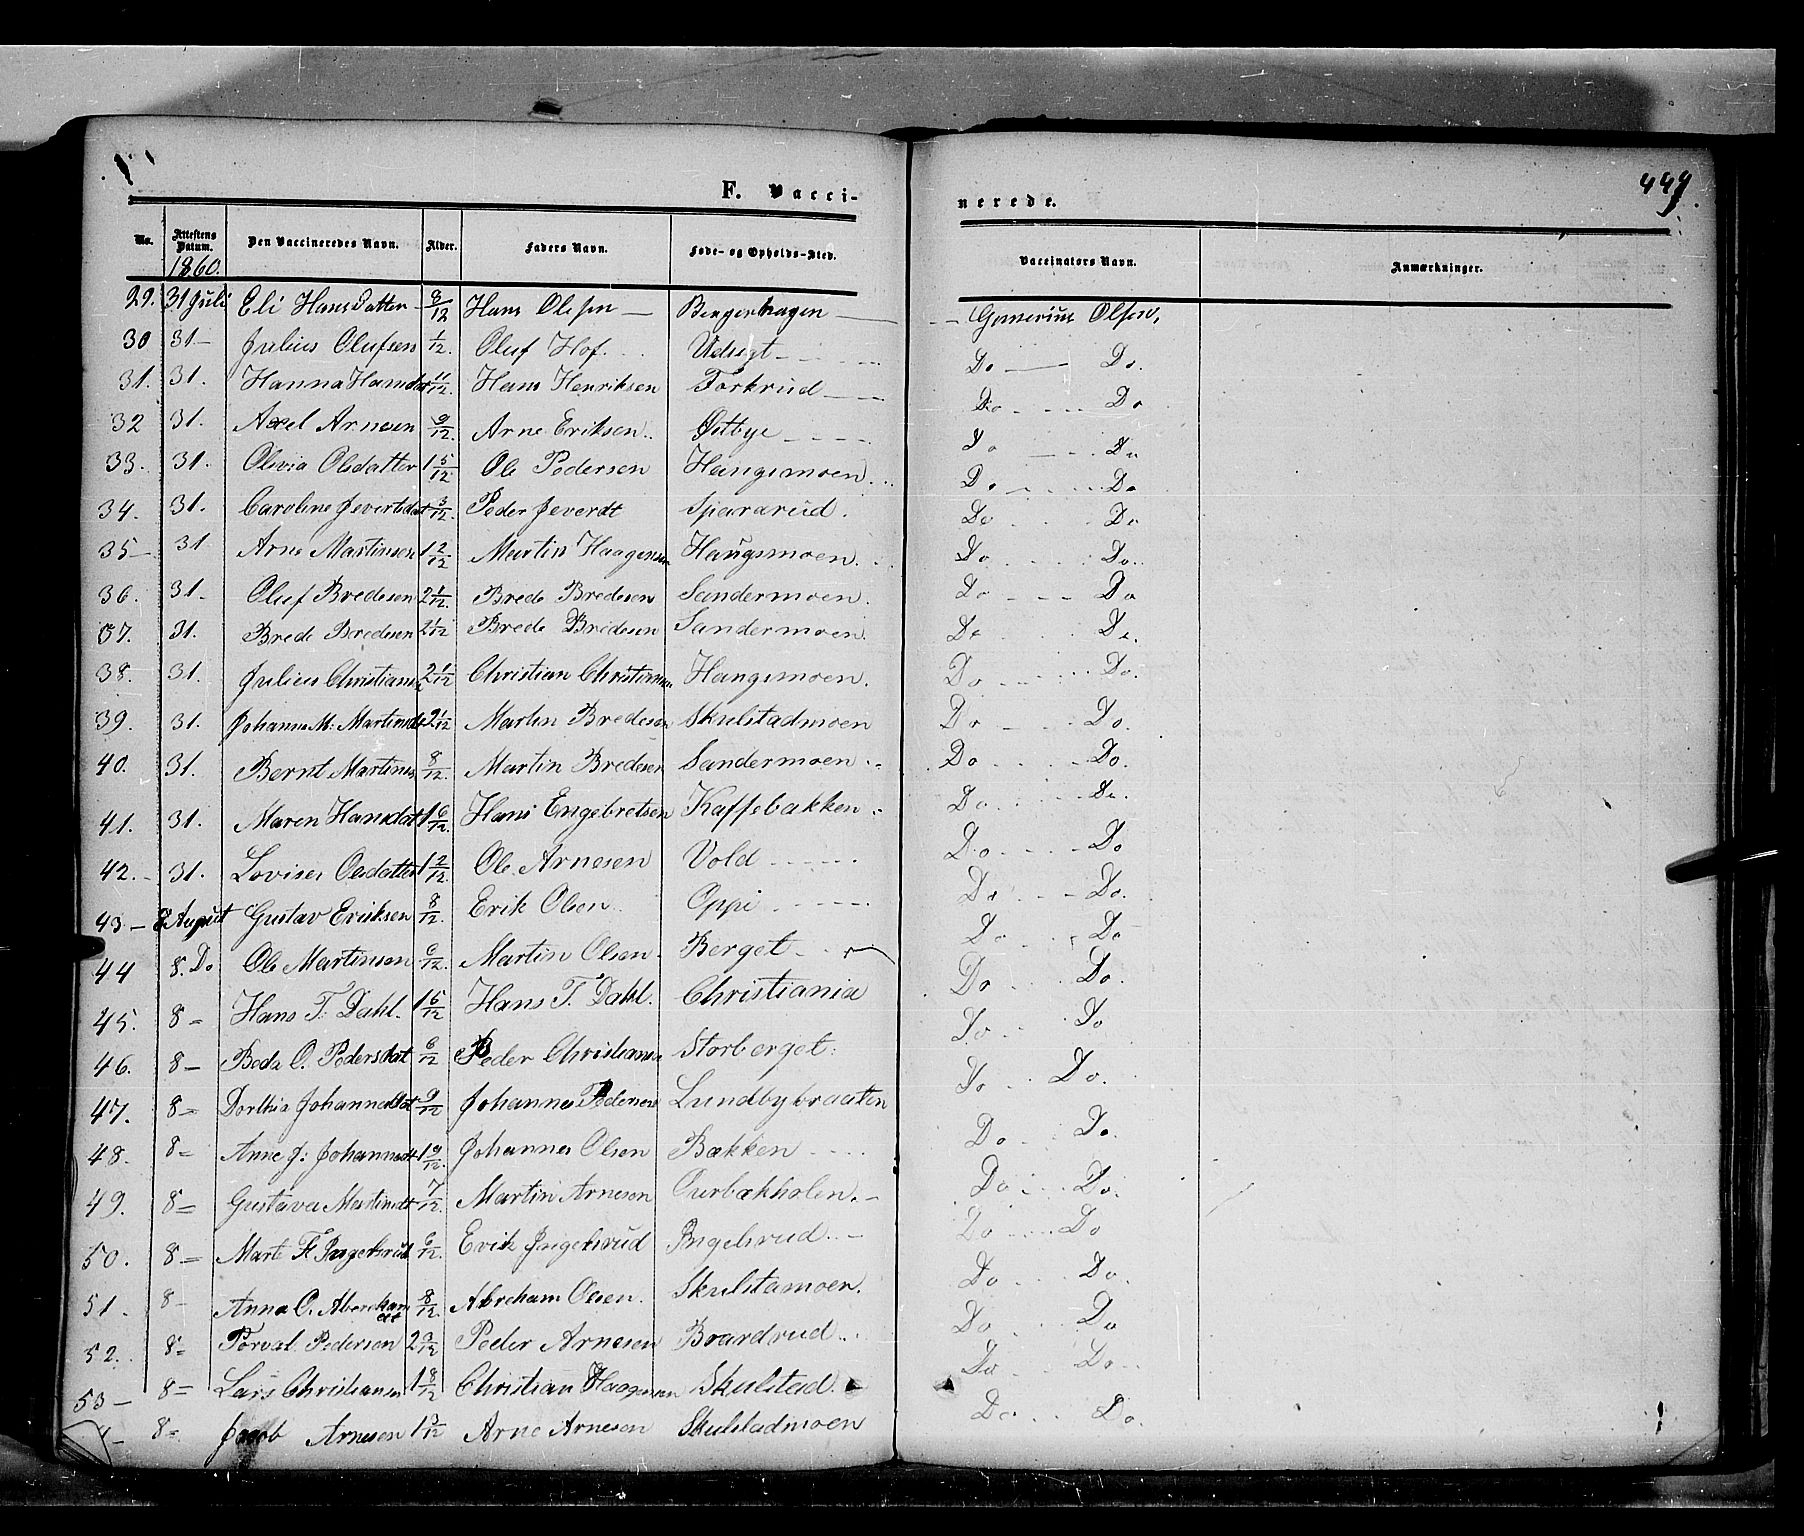 F. Vacci-
nerede.
449.
No. Attestens Datum. Den Vaccineredes Navn. Alder. Faders Navn. Føde- og Opholds-Sted. Vaccinators Navn. Anmærkninger.
1860.
29. 31 Juli Eli Hansdatter 8/12 Hans Olesen — Bergerhagen — Olsen,
30 31- Julius Olufsen 1/12. Oluf Hof. Udsigt Do — Do.
31. 31. Hanna Hansdat 11/12. Hans Henriksen Torkrud Do Do
32 31. Axel Arnesen 9/12. Arne Eriksen Østbye Do Do
33. 31. Olivia Olsdatter 1 5/12 Ole Pedersen Haugsmoen Do Do
34. 31. Caroline 3/12. Peder Jeverdt Spararud. Do Do
35- 31 Arne Martinsen 1 2/12 Martin Haagensen Haugsmoen. Do Do
36. 31. Oluf Bredesen 2 1/12. Brede Bredesen Sandermoen. Do Do
37. 31. Brede Bredesen 2 1/12 Brede Bredesen Sandermoen Do Do.
38. 31. Julius Christians 2 1/12 Christian Christensen Haugsmoen. Do Do.
39. 31. Johanna M. Martinsdt 2 1/12 Martin Bredesen Skulstadmoen Do Do.
40. 31. Bernt Martines 8/12. Martin Bredesen Sandermoen Do Do.
41. 31. Maren Hansdat 1 6/12. Hans Engebretsen Kaffebakken Do Do.
42. 31. Lovise Olsdatter 1 2/12 Ole Arnesen Vold Do Do
43- 8 August Gustav Eriksen 8/12. Erik Olsen Oppi Do Do.
44 8. Do Ole Martinsen 6/12. Martin Olsen Berget Do Do
45. 8 - Hans T. Dahl. 1 5/12 Hans T. Dahl. Christiania Do Do.
46. 8 - O. Pedersdat 6/12 Peder Christiansen Storberget. Do Do
47. 8 - Dorthia Johannesdat 9/12 Johannes Pedersen Lundbybraaten Do Do.
48. 8 - Anne J. Johannesdt 1 9/12. Johannes Olsen Bækken Do Do.
49. 8 - Gustava Martinsdt 7/12. Martin Arnesen Ourbækholen. Do Do.
50. 8 - Mart 6/12. Erik Ingelsrud Ingelsrud Do Do
51. 8 - Anna O. Abraham dt 8/12. Abraham Olsen. Skulstamoen. Do Do.
52. 8 - Torval Pedersen 2 3/12 Peder Arnesen Brardrud Do Do
53- 8 - Lars Christiansen 1 8/12 Christian Haagensen Skulstad. Do Do
8 - Jacob Arnesen 1 3/12 Arne Arnesen Skulstadmoen Do Do.